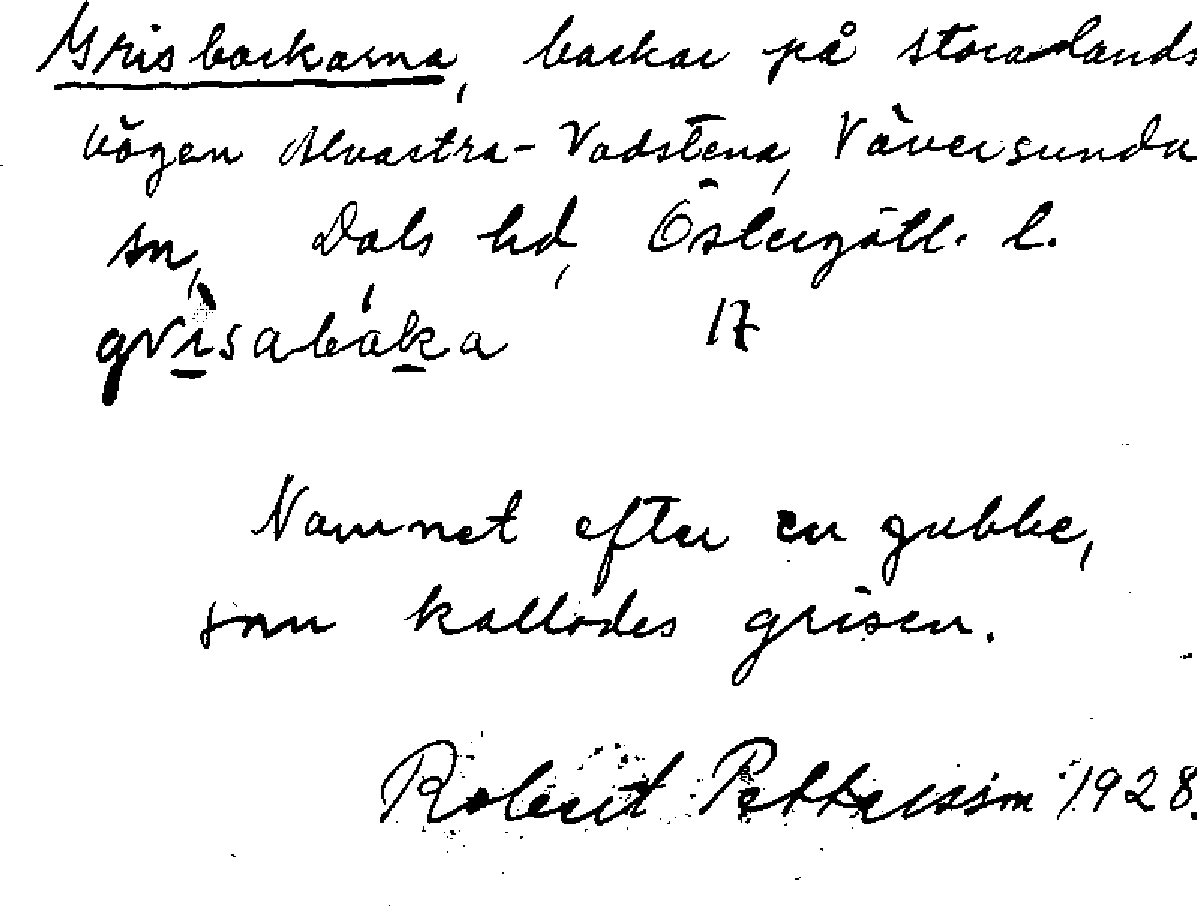 Grisbackarna, backar på stora lands
vägen Alvastra-Vadstena, Väversunda
sn, Dals hd, Östergötl. l.
grisabaka 17
Namnet efter en gubbe,
som kallades grisen.
Robert Pettersson 1928.